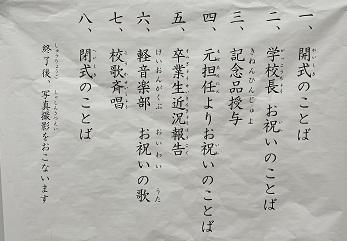 一、開式のことば
二、学校長　お祝いのことば
三、記念品授与
四、元担任よりお祝いのことば
五、卒業生近況報告
六、軽音楽部　お祝いの歌
七、校歌斉唱
八、閉式のことば
終了後、写真撮影をおこないます